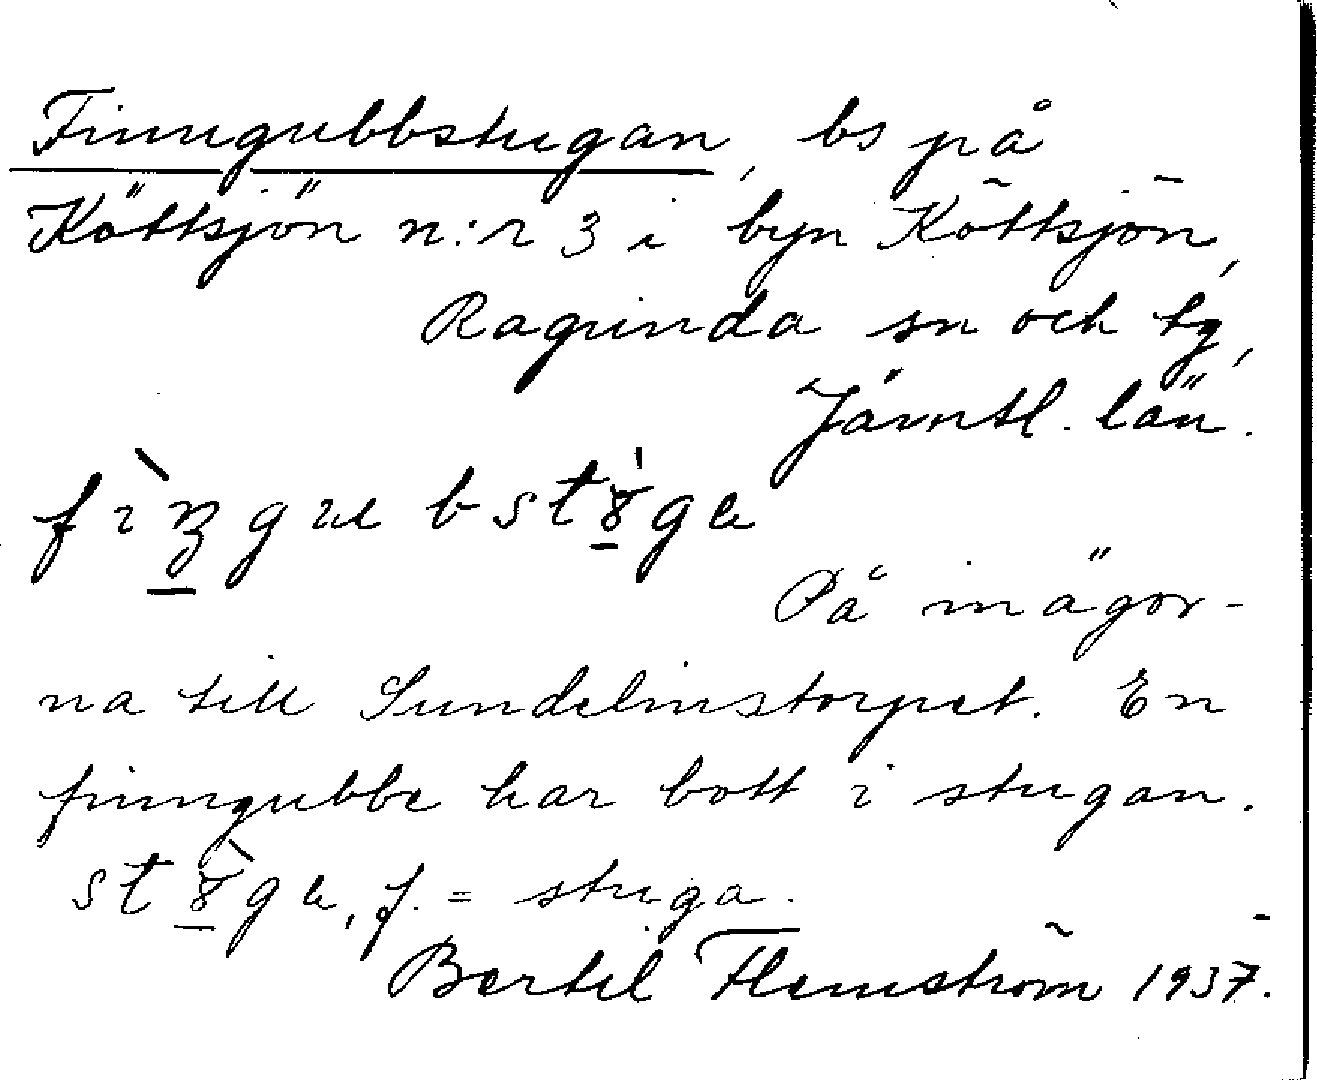 Finngubbstugan, bs på
Köttsjön n:r 3 i byn Köttsjön,
Ragunda sn och tg,
Jämtl. län.
På inägor-
na till Sundelinstorpet. En
finngubbe har bott i stugan.
f. = stuga.
Bertil Flemström 1937.